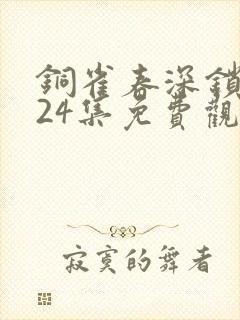 銅雀春深鎖
24集免費觀
寂寞的舞者